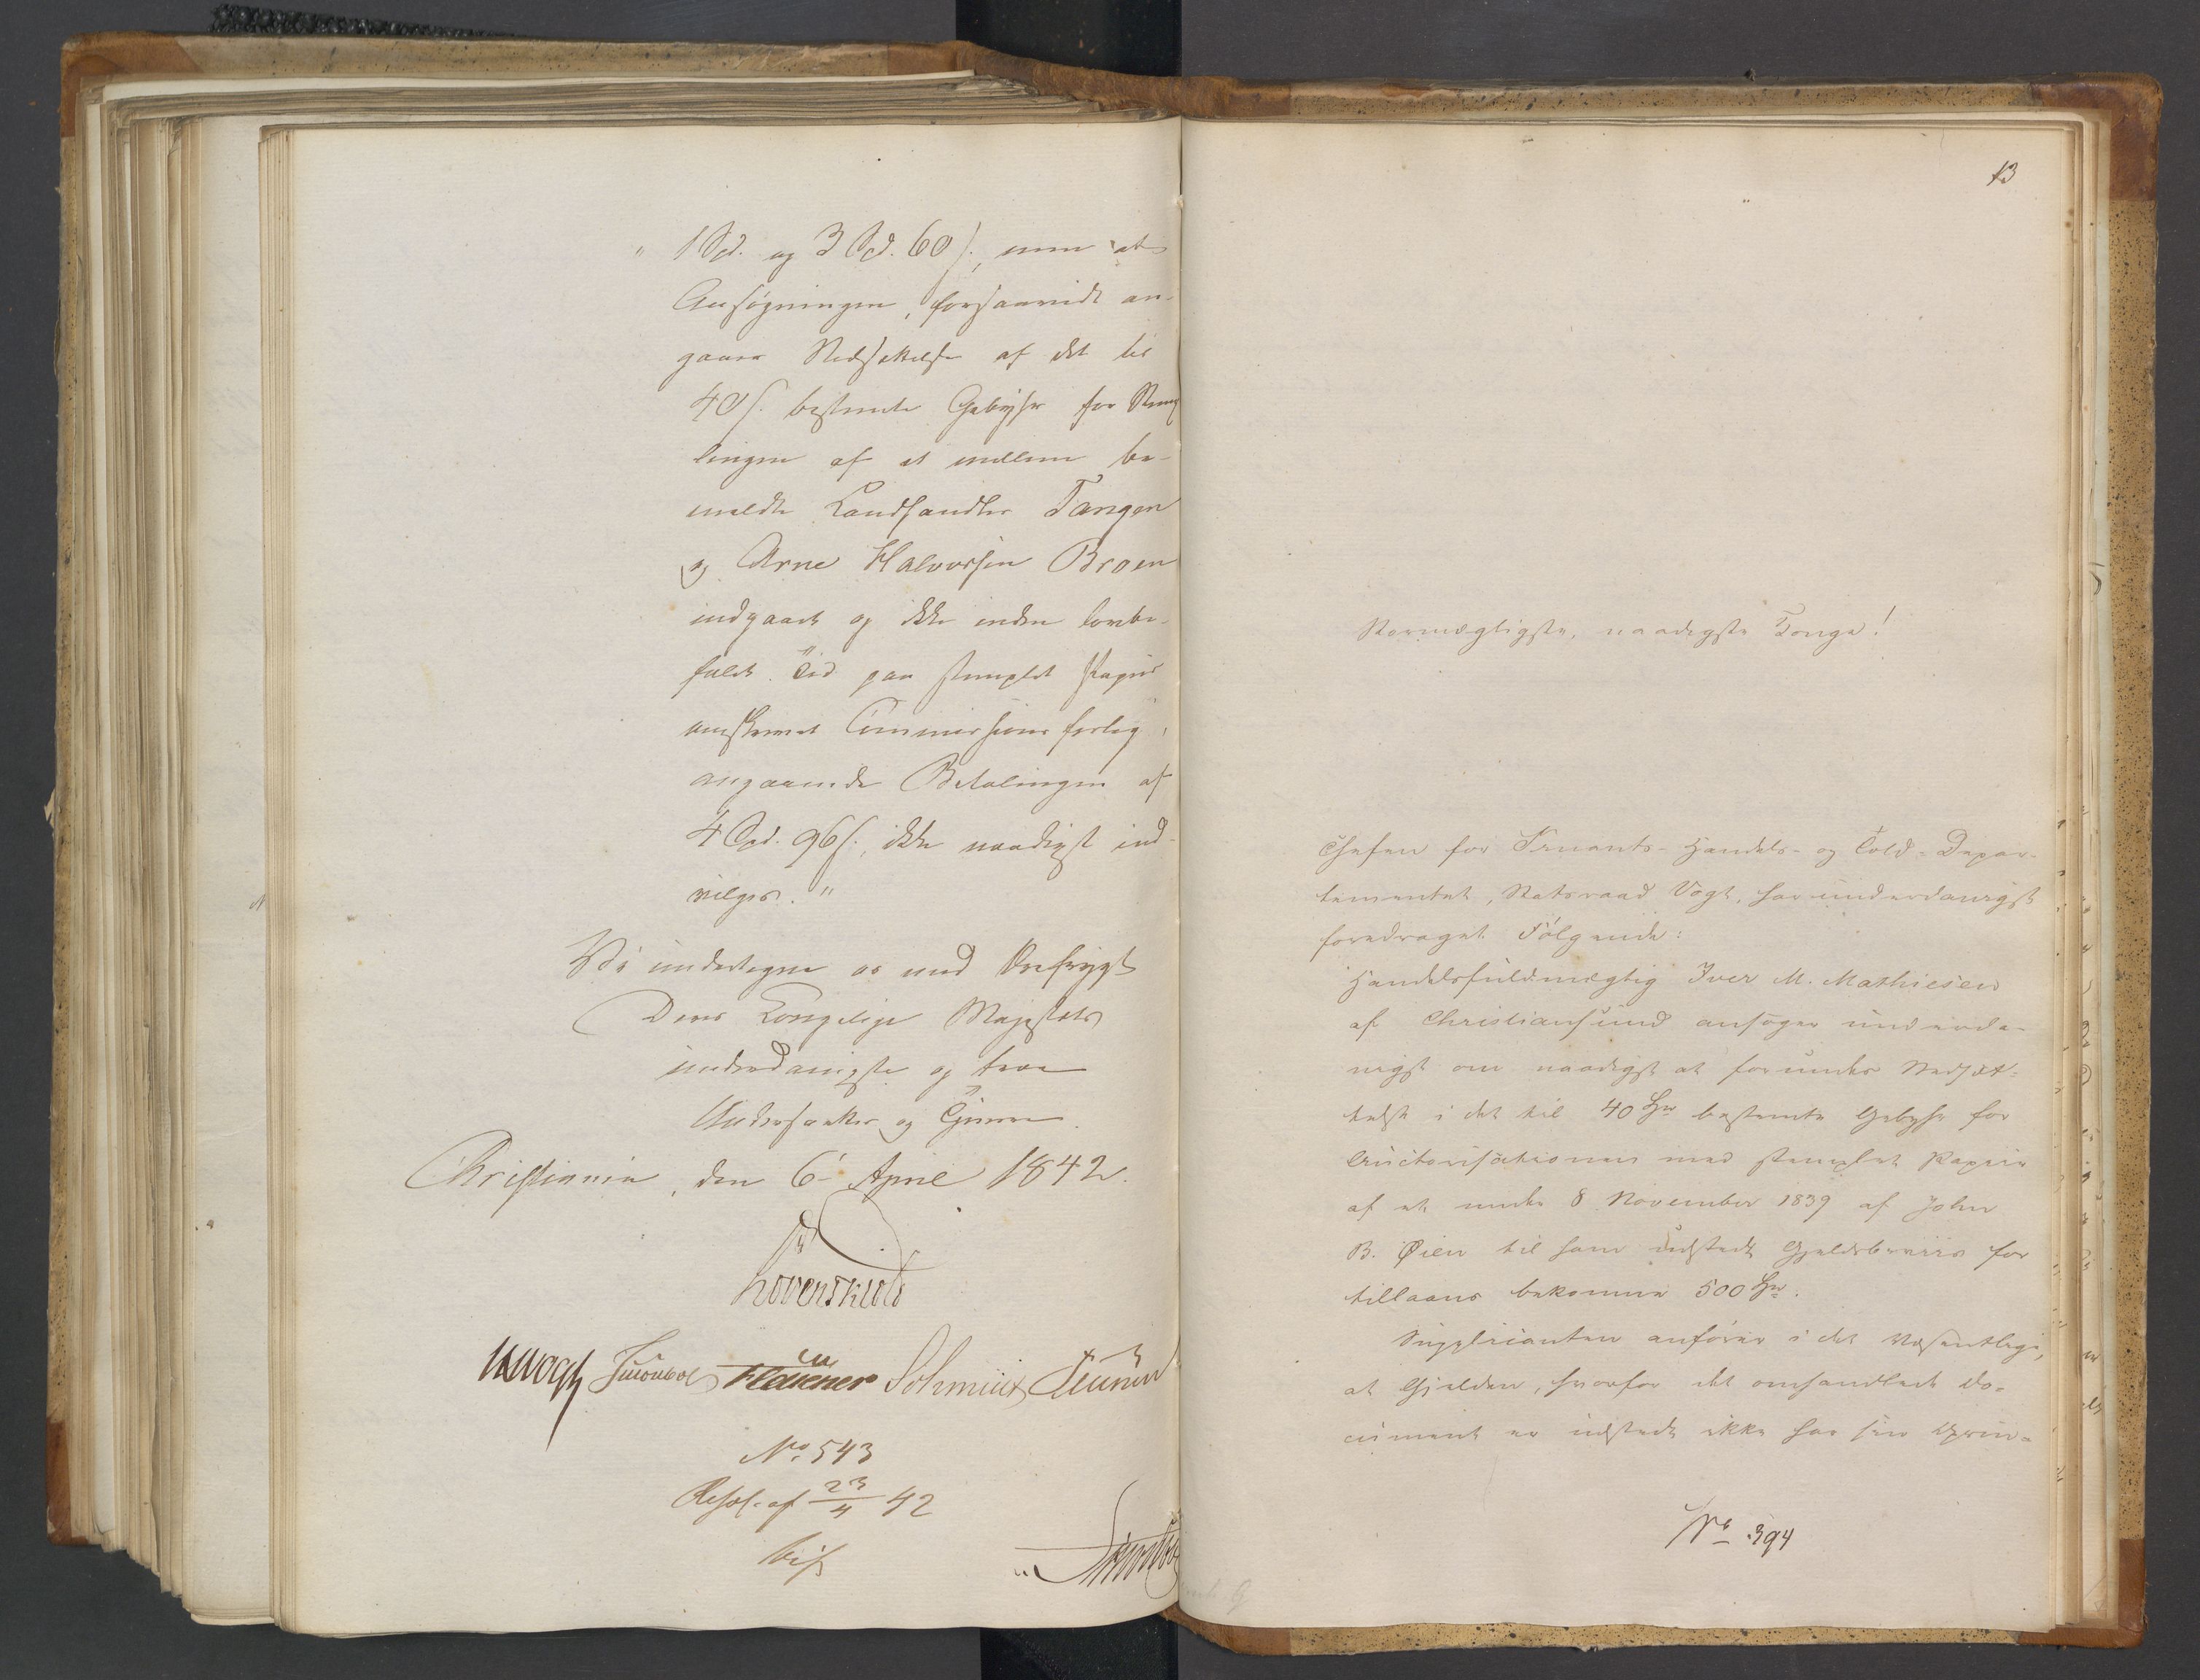 " 1 Spd. og 3 Spd. 60 s., men at
Ansøgningen, forsaavidt an-
gaaer Nedsættelse af det til
40 s. bestemte Gebyhr for Stemp
lingen af et mellem be-
meldte Landhandler Tangen
og Arne Halvorsen Broen
indgaaet og ikke inden lovbe-
falet Tid paa stemplet Papiir
omskrevet Commissionsforlig,
angaaende Betalingen af
4 Spd. 96 s., ikke naadigst ind-
vilges."
Vi undertegne os med Ærefrygt
Deres Kongelige Majestæts
underdanigste og troe
Undersaatter og Tjenere.
Christiania, den 6 April 1842.
Løvenskiold
Vogt Hauener Schmidt
No 543
Resol. af 23/4 42
13
Stormægtigste, naadigste Konge!
Chefen for Finants- Handels- og Told-Depar-
tementet, Statsraad Vogt, har underdanigst
foredraget Følgende:
Handelsfuldmægtig Iver M. Mathiesen
af Christiansund ansøger underda-
nigst om naadigst at forundes Nedsæt-
telse i det til 40 Spd bestemte Gebyhr for
Auctorisationen med stemplet Papiir
af et under 8 November 1839 af John
B. Øien til ham udstedt Gjeldsbeviis for
tillaans bekomne 500 Spd.
Supplicanten anfører i det Væsentlige,
at Gjelden, hvorfor det omhandlede Do-
cument er udstedt ikke har sin Oprin-
No 394